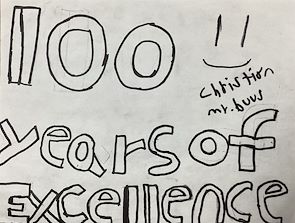 100
Christian
mr. buus
years of
Excellence